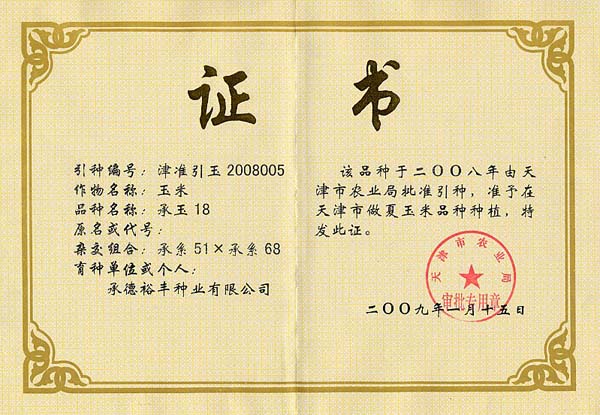 证 书
引种编号：津准引玉2008005
作物名称：玉米
品种名称：承玉18
原名或代号：
杂交组合：承系51×承系68
育种单位或个人：
承德裕丰种业有限公司
该品种于二〇〇八年由天
津市农业局批准引种，准予在
天津市做夏玉米品种种植，特
发此证。
天津市农业局
审批专用章
二〇〇九年一月十五日